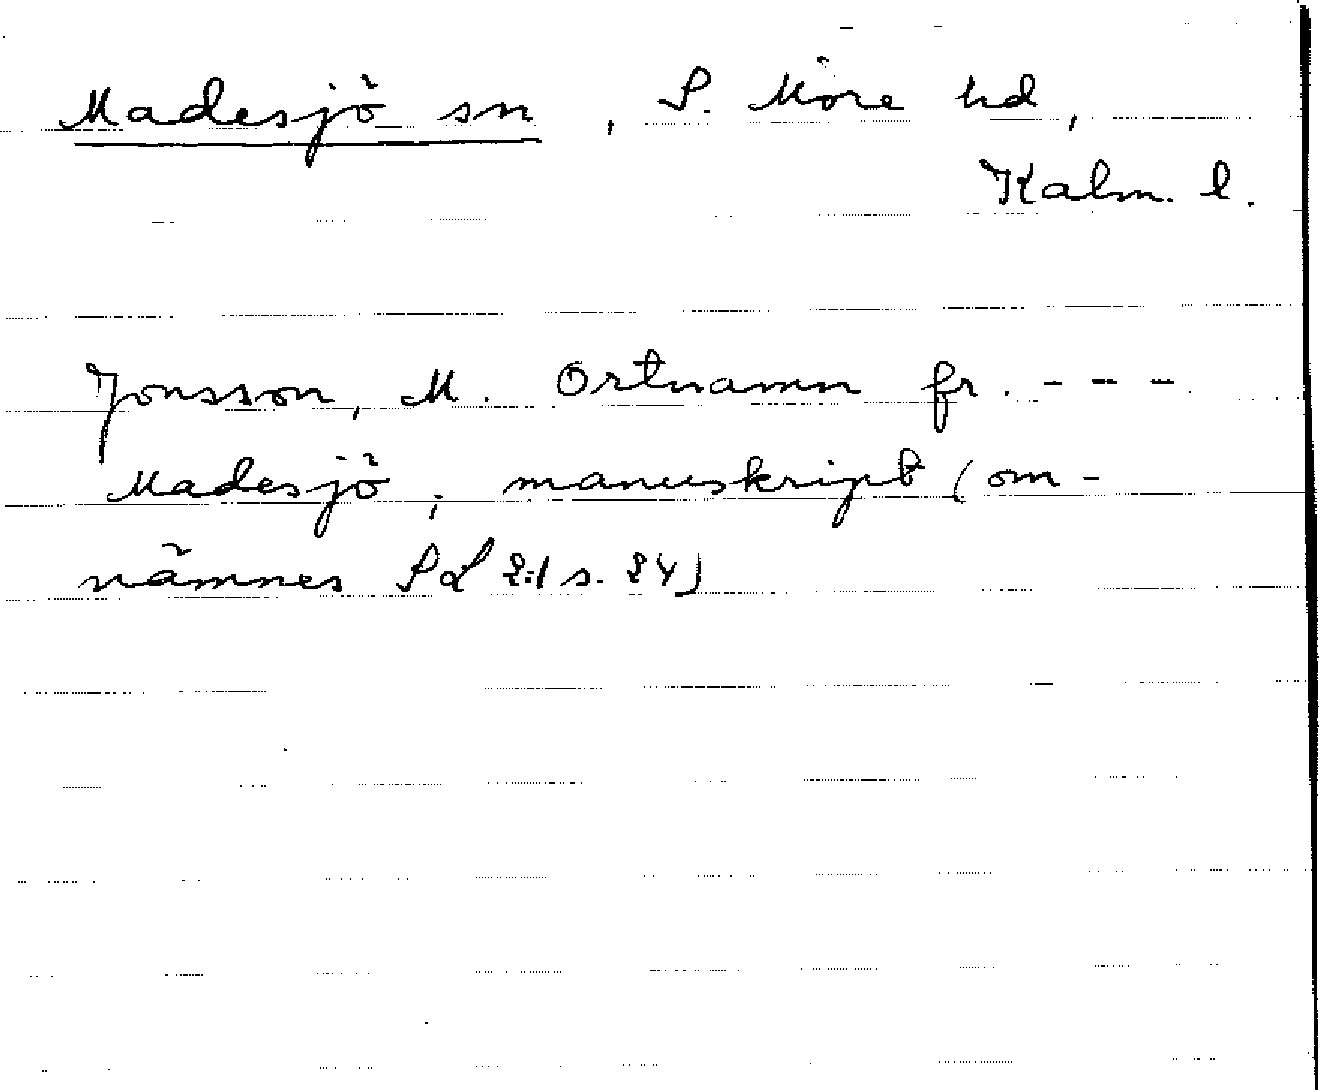 Madesjö sn, S. Möre hd,
Kalm. l.
Jonsson, M. Ortnamn fr. - - -
Madesjö, manuskript (om-
nämnes SL 2:1 s. 24)